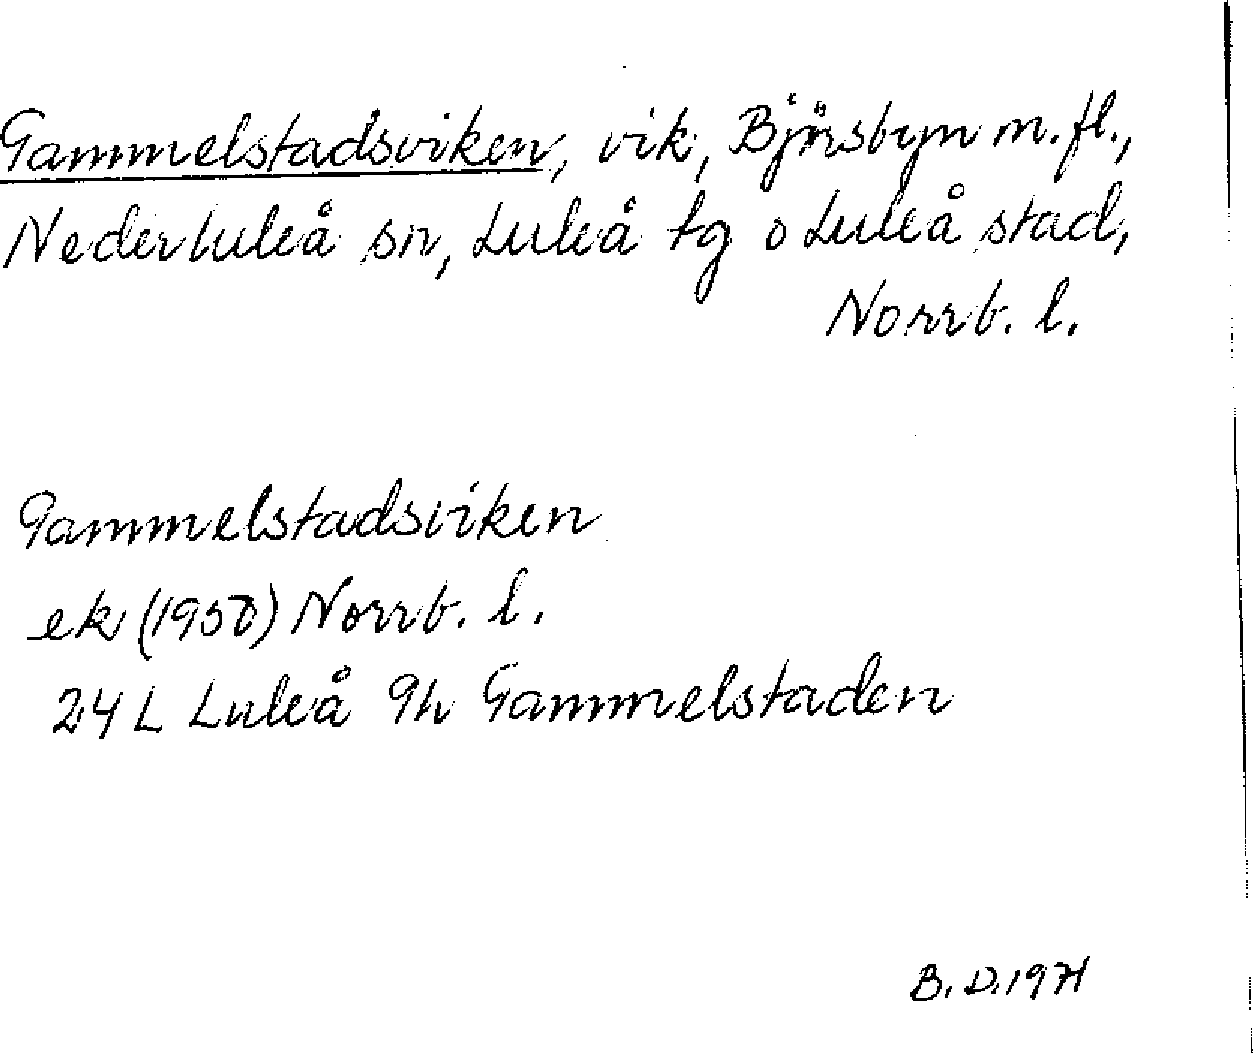 Gammelstadsviken, vik, Björsbyn m.fl.,
Nederluleå sn, Luleå tg o Luleå stad,
Norrb. l.
Gammelstadsviken
ek (1950) Norrb. l.
24 L Luleå 9h Gammelstaden
B.D. 1971